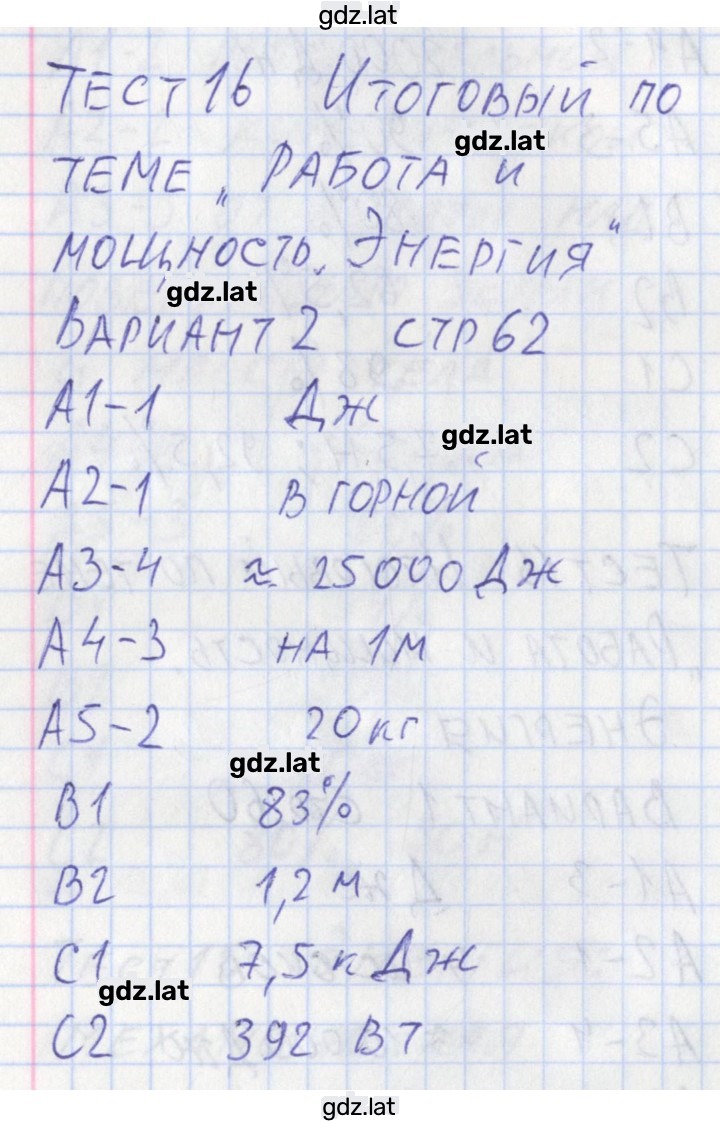 gdz.lat
Тест 16 Итоговый по
gdz.lat
теме „Работа и
мощность. Энергия"
gdz.lat
Вариант 2 стр 62
А1-1 Дж
gdz.lat
А2-1 в горной
А3-4 ≈ 25000 Дж
А4-3 на 1м
А5-2 20кг
gdz.lat
В1 83%
В2 1,2 м
С1 7,5 кДж
gdz.lat
С2 392 Вт
gdz.lat